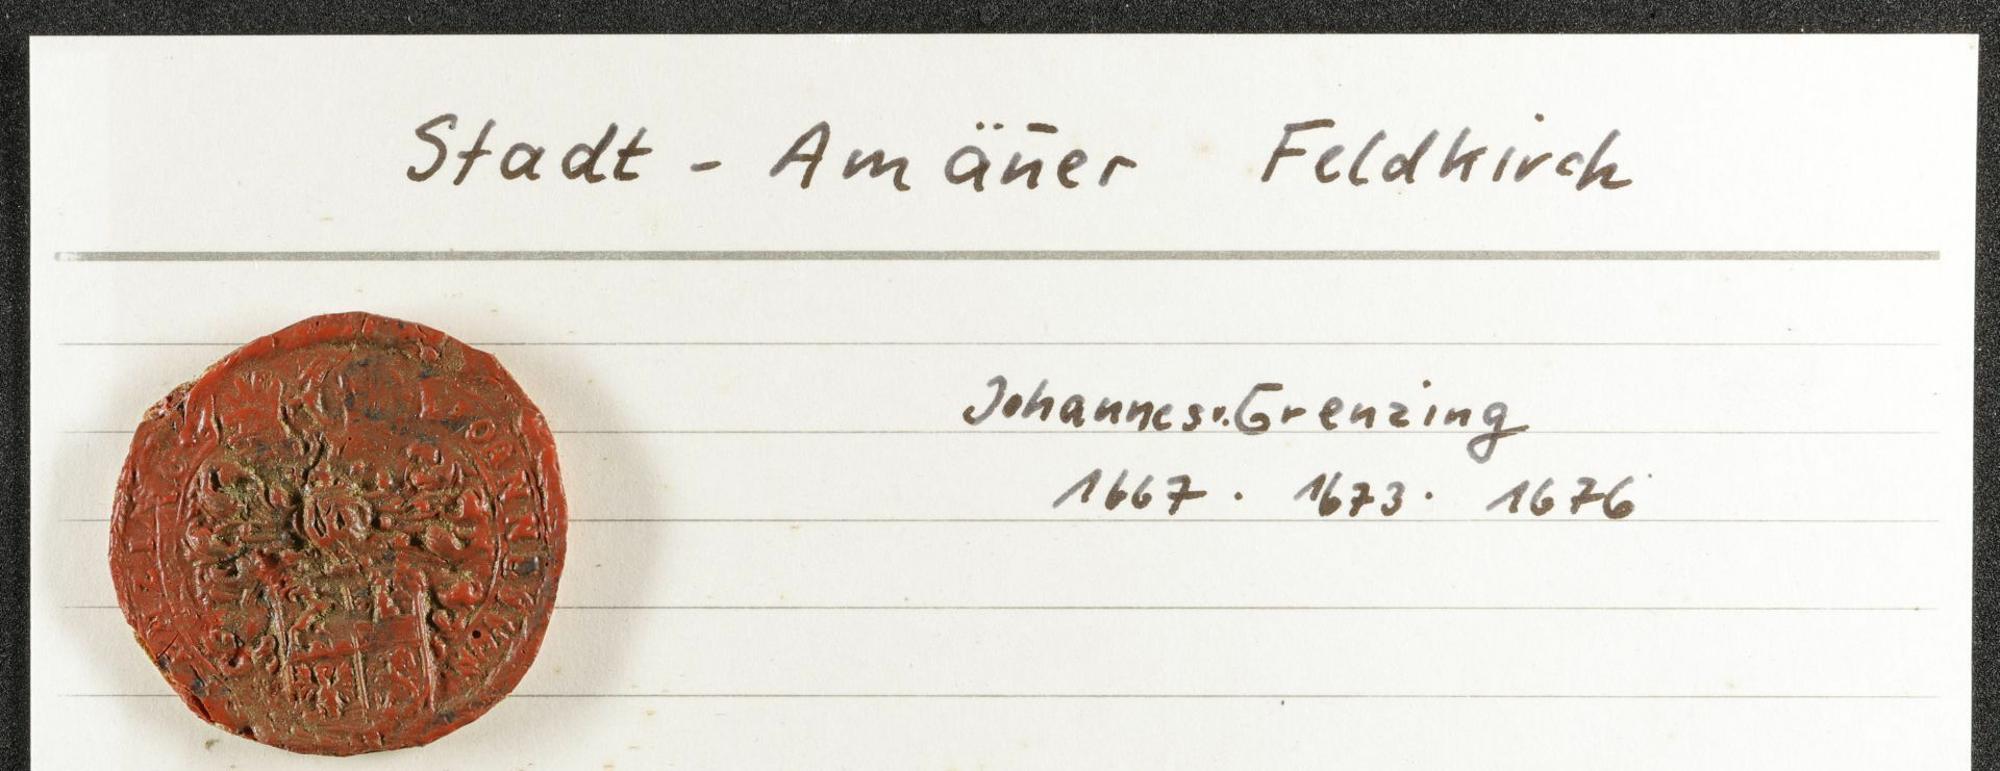 Stadt - Amän̄er Feldkirch
Johannes v. Grenzing
1667 . 1673 . 1676